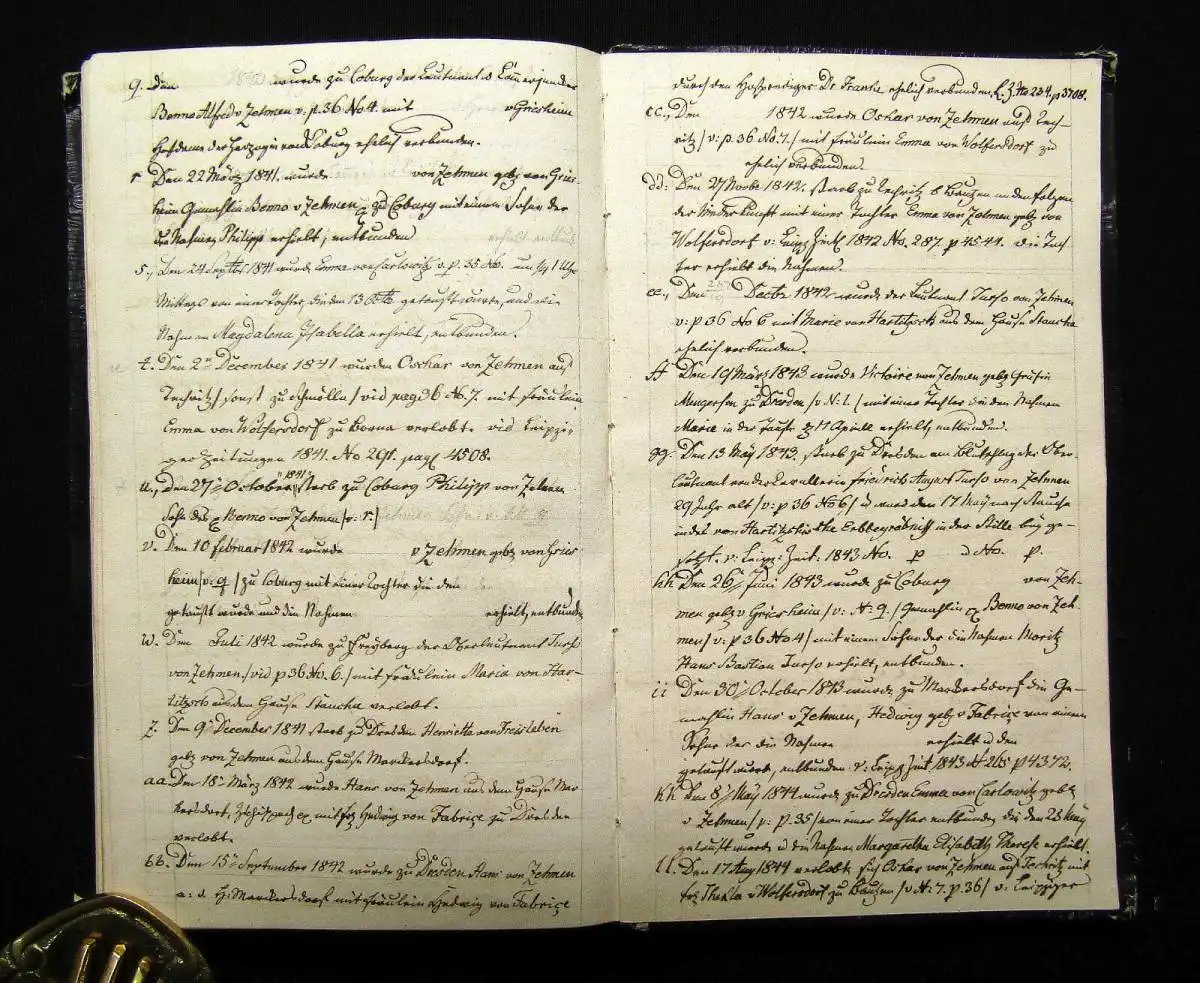 q. Den 1840 wurde zu Coburg der Leutnant u Kammerjunker
Benno Alfred v Zehmen v. p. 36 No 4. mit v Griesheim
Hofdame der Herzogin von Coburg ehelich verbunden.
r Den 22 März 1841. wurde von Zehmen geb von Gries-
heim Gemahlin Benno v Zehmen zu Coburg mit einem Sohne der
die Nahmen Philipp erhielt, entbunden
s., Den 24 Septbr 1841 wurde Emma von Carlowitz v. p. 35 No. um 1 Uhr
Mittags von einer Tochter, die den 13 Octb getauft wurde, und die
Nahmen Magdalena Isabella erhielt, entbunden.
t. Den 2n December 1841 wurden Oskar von Zehmen auf
Techritz / sonst zu Schmölln / vid pag 36 No. 7. mit Fräulein
Emma von Wolfersdorf zu Borna verlobt. vid Leipzi-
ger Zeitungen 1841. No 291. pag 4508.
u., Den 27n October 1841 starb zu Coburg Philipp von Zehmen
Sohn des Benno von Zehmen / v. r. /
v. Den 10 Februar 1842 wurde v Zehmen geb von Gries
heim / v: q / zu Coburg mit einer Tochter die den
getauft wurde und die Nahmen erhielt, entbunden
w. Den Juli 1842 wurde zu Freyberg der Oberleutnant Turso
von Zehmen / vid p 36 No. 6. / mit Fräulein Maria von Har-
titzsch aus dem Hause Staucha verlobt.
z. Den 9n December 1841 starb zu Dresden Henriette von Freisleben
geb von Zehmen aus dem Hause Markersdorf.
aa. Den 18n März 1842 wurde Hans von Zehmen aus dem Hause Mar
kersdorf, mit Hedwig von Fabrice zu Dresden
verlobt.
bb. Den 15n September 1842 wurde zu Dresden Hans von Zehmen
a: d. H: Markersdorf mit Fräulein Hedwig von Fabrice
durch den Hofprediger Dr. Franke ehelich verbunden. L. Z. No 234. p 3708.
cc., Den 1842 wurde Oskar von Zehmen auf Tech-
ritz / v: p 36 No. 7. / mit Fräulein Emma von Wolfersdorf zu
ehelich verbunden.
dd: Den 27 Novbr 1842. starb zu Techritz b Bautzen an den Folgen
der Niederkunft mit einer Tochter Emma von Zehmen geb von
Wolfersdorf v: Leipz Zeit 1842 No. 287. p 4541. die Toch-
ter erhielt die Nahmen.
ee., Den Decbr 1842 wurde der Leutnant Turso von Zehmen
v: p 36 No 6 mit Marie von Hartitzsch aus dem Hause Staucha
ehelich verbunden.
ff Den 19 März 1843 wurde Victoire von Zehmen geb Gräfin
Mengersen zu Dresden / v N: l. / mit einer Tochter die den Nahmen
Marie in der Taufe d 11 Aprill erhielt, entbunden.
gg. Den 13 May 1843. starb zu Dresden am Blutschlag der Ober-
leutnant von der Kavallerie Friedrich August Turso von Zehmen
29 Jahr alt / v: p 36 No 6 / u ward den 17 May nach Staucha
in das von Hartitzschische Erbbegräbniß in der Stille bey ge-
setzt. v: Leipz: Zeit. 1843 No. p u No. p.
hh Den 26n Juni 1843 wurde zu Coburg von Zeh-
men geb v Griesheim / v: N: q. / Gemahlin Benno von Zeh-
men / v: p 36 No 4 / mit einem Sohne der die Nahmen Moritz
Hans Bastian Turso erhielt, entbunden.
ii Den 30n October 1843 wurde zu Markersdorf die Ge-
mahlin Hans v Zehmen, Hedwig geb v Fabrice von einem
Sohne der die Nahmen erhielt u den
getauft wurde, entbunden. v: Leipz Zeit 1843 N 265 p 4372.
kk Den 8n May 1844 wurde zu Dresden Emma von Carlowitz geb
v Zehmen / v: p. 35 / von einer Tochter entbunden die den 28 May
getauft wurde u die Nahmen Margaretha Elisabeth Therese erhielt.
ll. Den 17 Aug 1844 verlobt sich Oskar von Zehmen auf Techritz mit
Thekla v Wolfersdorf zu Bautzen / v N: 7. p. 36 / v. Leipziger